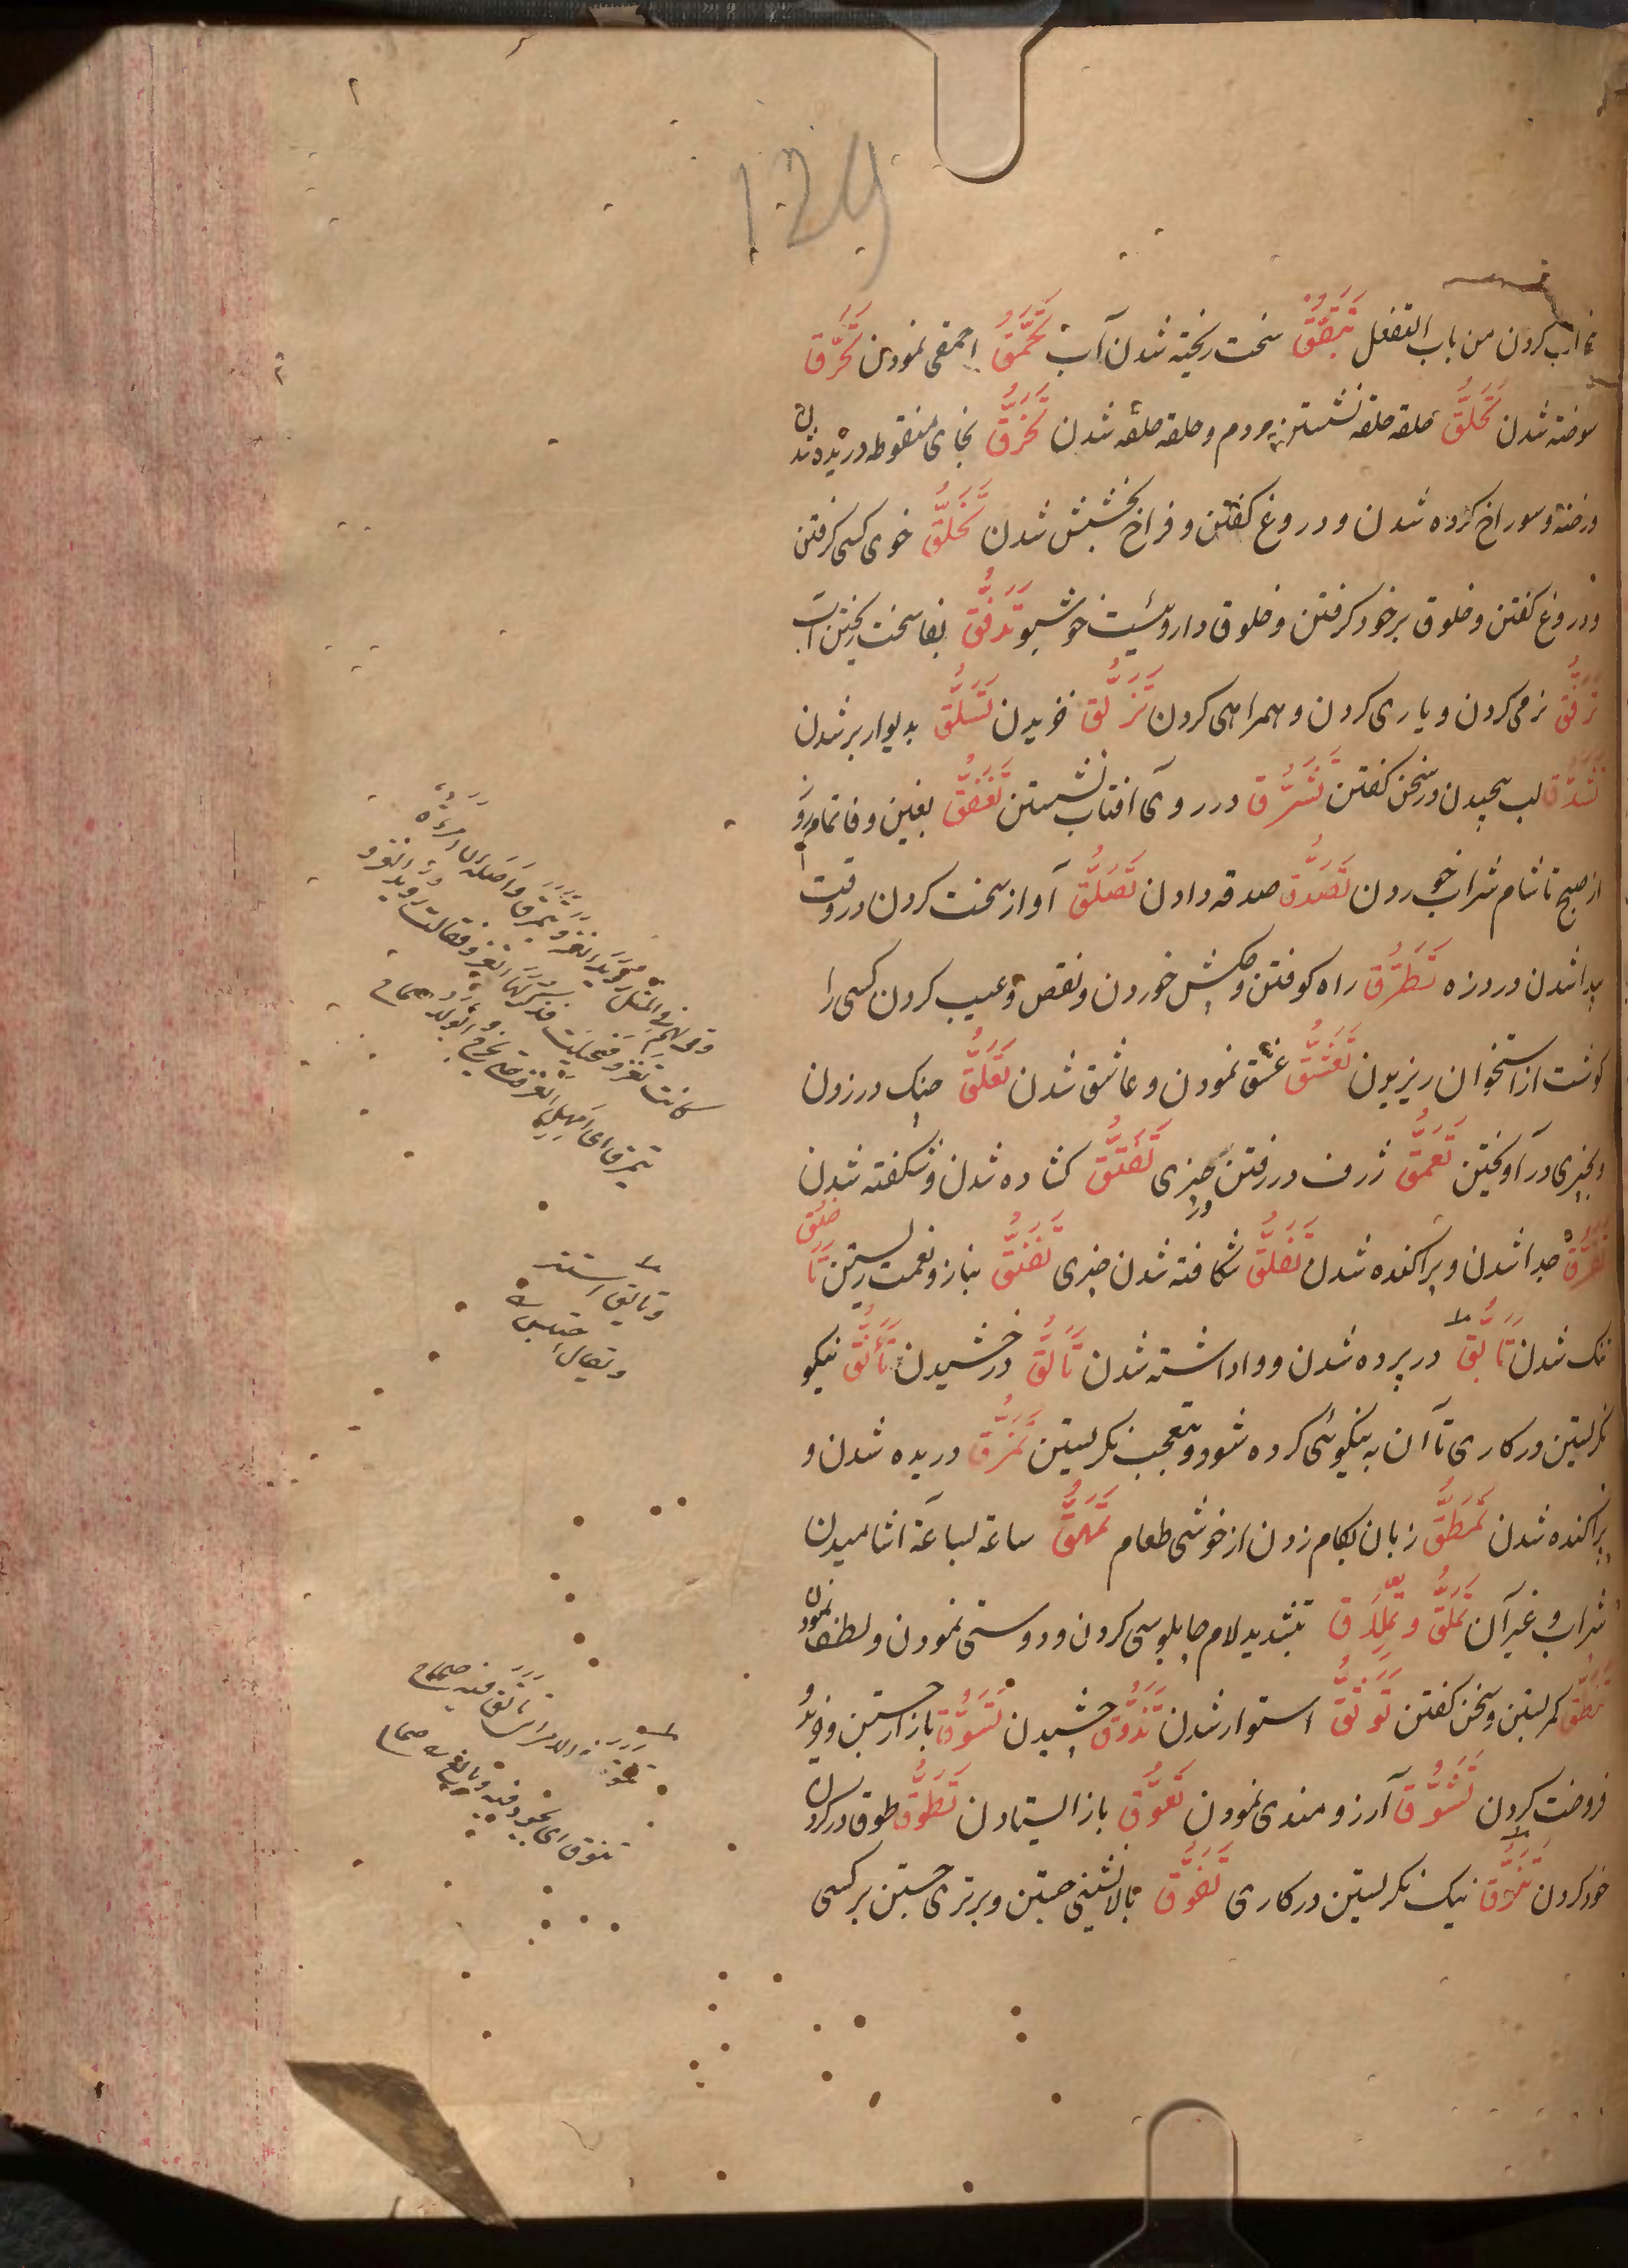 129
خراب کردن من باب التفعل تَبَصُّق سخت ریخته شدن آب تَحَمُّق احمقی نمودن تَحَرُّق
سوخته شدن تَحَلُّق حلقه حلقه نشستن مردم و حلقه حلقه شدن تَخَرُّق بخای منقوطه دریده شدن
و رخنه و سوراخ کرده شدن و دروغ کفتن و فراخ بخشش شدن تَخَلُّق خوی کسی کرفتن
و دروغ کفتن و خلوق برخود کرفتن و خلوق داروئیست خوشبو تَدَفُّق بفا سخت ریختن آب
تَرَفُّق نرمی کردن و یاری کردن و همراهی کردن تَزَلُّق خزیدن تَسَلُّق بدیوار برشدن
تَشَدُّق لب پیچیدن در سخن کفتن تَشَرُّق در روی آفتاب نشستن تَغَفُّق بغین و فا تمام روز
از صبح تا شام شراب خوردن تَصَدُّق صدقه دادن تَصَلُّق آواز سخت کردن در وقت
پیدا شدن درد زه تَطَرُّق راه کوفتن و خورش خوردن و نقص و عیب کردن کسی را
کوشت از استخوان ریزیدن تَعَشُّق عشق نمودن و عاشق شدن تَعَلُّق چنک در زدن
و بچیزی در آویختن تَعَمُّق ژرف در رفتن در چیزی تَفَتُّق کشاده شدن و شکفته شدن
تَفَرُّق جدا شدن و پراکنده شدن تَفَلُّق شکافته شدن چیزی تَفَنُّق بناز و نعمت زیستن
تنک شدن تَأَبُّق در پرده شدن و واداشته شدن تَأَلُّق درخشیدن تَأَنُّق نیکو
نکرستن در کاری تا آن به نیکوئی کرده شود و تعجب نکرستن تَمَزُّق دریده شدن و
پراکنده شدن تَمَطُّق زبان بکام زدن از خوشی طعام تَمَهُّق ساعة لساعة آشامیدن
شراب و غیر آن تَمَلُّق و تِمِلَّاق بتشدید لام چاپلوسی کردن و دوستی نمودن و لطف نمودن
تَنَطُّق کمر بستن و سخن کفتن تَوَثُّق استوار شدن تَذَوُّق چشیدن تَسَوُّق بازار جستن و خرید
فروخت کردن تَشَوُّق آرزومندی نمودن تَعَوُّق باز ایستادن تَطَوُّق طوق در کردن
خود کردن تَنَوُّق نیک نکرستن در کاری تَفَوُّق بالانشینی جستن و برتری جستن بر کسی
وتأبق استتر
ویقال احتبس
تنوق ای تجود فیه وبالغ صحاح